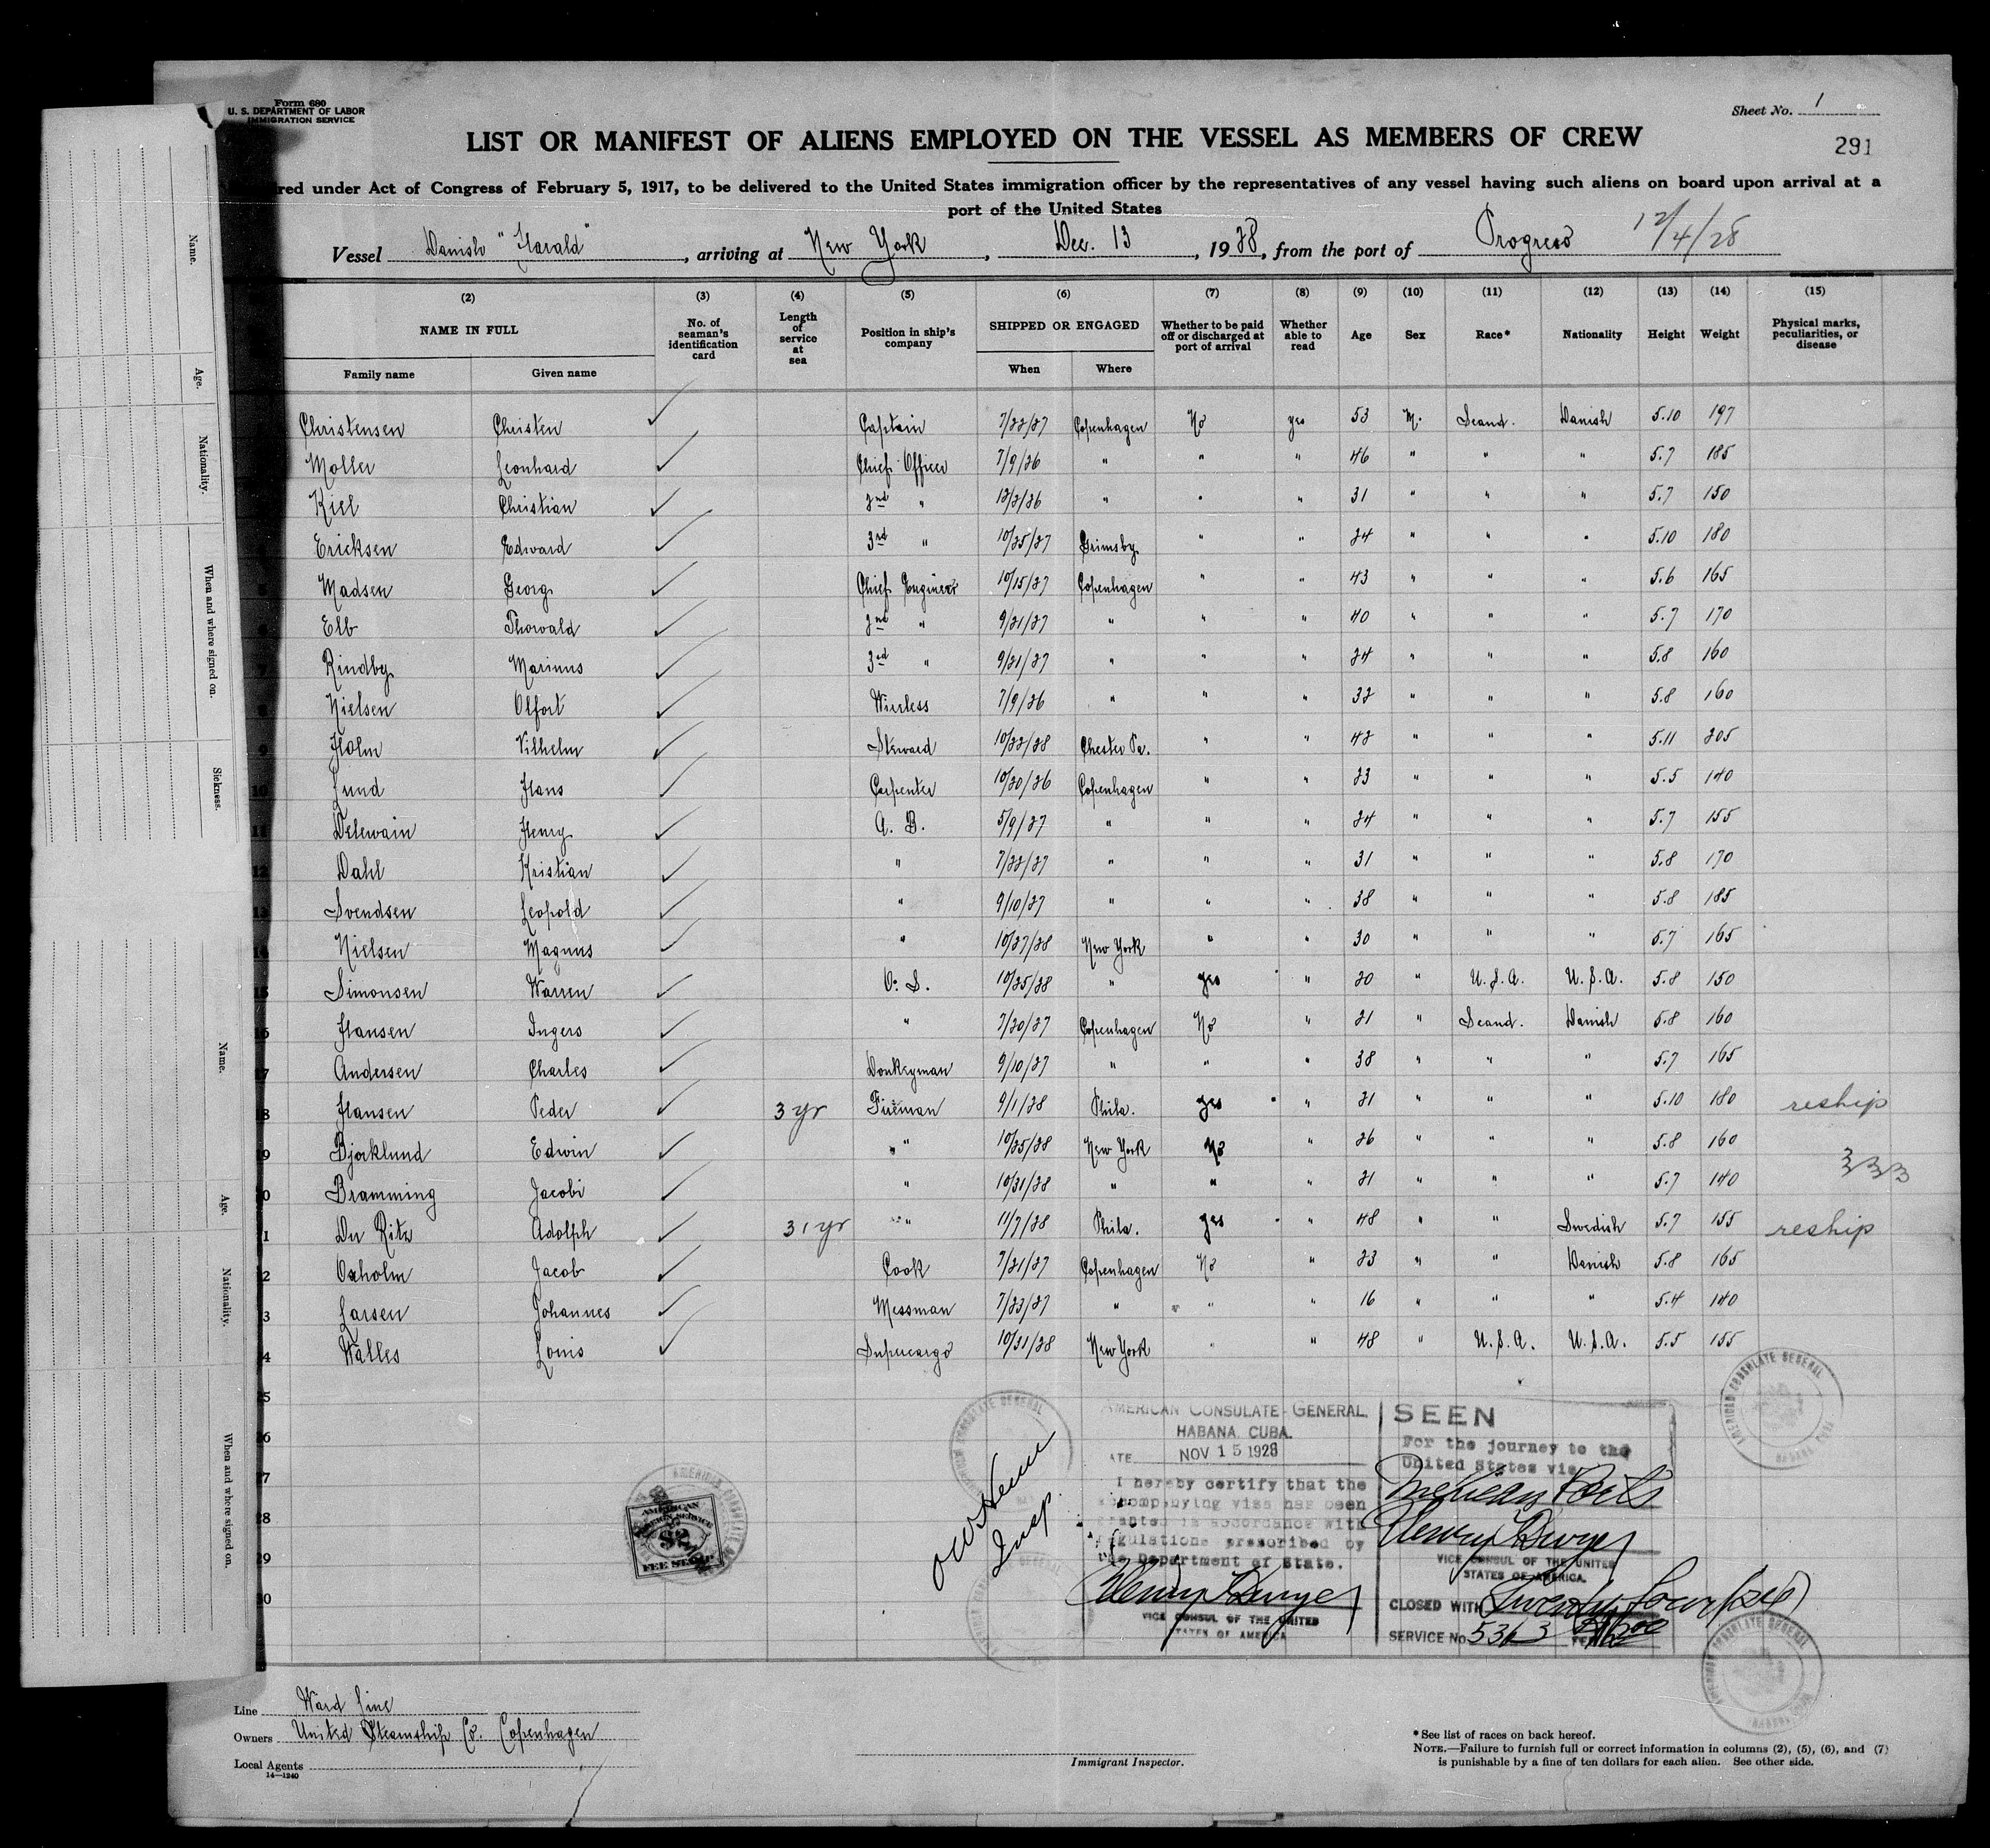 Form 680
U. S. DEPARTMENT OF LABOR
IMMIGRATION SERVICE
Sheet No. 1
LIST OR MANIFEST OF ALIENS EMPLOYED ON THE VESSEL AS MEMBERS OF CREW
291
red under Act of Congress of February 5, 1917, to be delivered to the United States immigration officer by the representatives of any vessel having such aliens on board upon arrival at a
port of the United States
Vessel Danish "Harald", arriving at New York, Dec. 13, 1928, from the port of Progreso 12/4/28
(2) (3) (4) (5) (6) (7) (8) (9) (10) (11) (12) (13) (14) (15)
NAME IN FULL No. of seaman's identification card Length of service at sea Position in ship's company SHIPPED OR ENGAGED Whether to be paid off or discharged at port of arrival Whether able to read Age Sex Race* Nationality Height Weight Physical marks, peculiarities, or disease
Family name Given name When Where
Christensen Christen ✓ Captain 7/22/27 Copenhagen No yes 53 M. Scand. Danish 5.10 197
Moller Leonhard ✓ Chief Officer 7/9/26 " " " 46 " " " 5.7 185
Kiel Christian ✓ 2nd " 12/2/26 " " " 31 " " " 5.7 150
Ericksen Edward ✓ 3rd " 10/25/27 Grimsby " " 24 " " " 5.10 180
5 Madsen Georg ✓ Chief Engineer 10/15/27 Copenhagen " " 43 " " " 5.6 165
6 Elb Thorwald ✓ 2nd " 9/21/27 " " " 40 " " " 5.7 170
7 Rindby Marinus ✓ 3rd " 9/21/27 " " " 24 " " " 5.8 160
8 Nielsen Olfort ✓ Wireless 7/9/26 " " " 32 " " " 5.8 160
9 Holm Vilhelm ✓ Steward 10/22/28 Chester Pa. " " 42 " " " 5.11 205
10 Lund Hans ✓ Carpenter 10/20/26 Copenhagen " " 23 " " " 5.5 140
11 Delewain Henry ✓ A. B. 5/9/27 " " " 24 " " " 5.7 155
12 Dahl Kristian ✓ " 7/22/27 " " " 31 " " " 5.8 170
13 Svendsen Leopold ✓ " 9/10/27 " " " 38 " " " 5.8 185
14 Nielsen Magnus ✓ " 10/27/28 New York " " 30 " " " 5.7 165
15 Simonsen Warren ✓ O. S. 10/25/28 " yes " 20 " U.S.A. U.S.A. 5.8 150
16 Hansen Ingers ✓ " 7/20/27 Copenhagen No " 21 " Scand. Danish 5.8 160
17 Andersen Charles ✓ Donkeyman 9/10/27 " " " 38 " " " 5.7 165
18 Hansen Peder ✓ 3 yr Fireman 9/1/28 Phila. yes " 21 " " " 5.10 180 reship
19 Bjorklund Edwin ✓ " 10/25/28 New York No " 26 " " " 5.8 160
0 Bramming Jacobi ✓ " 10/31/28 " " " 21 " " " 5.7 140 333
1 Du Ritz Adolph ✓ 31 yr " 11/7/28 Phila. yes " 48 " " Swedish 5.7 155 reship
2 Oxholm Jacob ✓ Cook 7/21/27 Copenhagen No " 23 " " Danish 5.8 165
3 Larsen Johannes ✓ Messman 7/23/27 " " " 16 " " " 5.4 140
4 Walles Louis ✓ Supercargo 10/31/28 New York " " 48 " U.S.A. U.S.A. 5.5 155
25
26
27
28
29
30
AMERICAN CONSULATE-GENERAL
HABANA, CUBA.
ATE NOV 15 1928
I hereby certify that the
accompanying visa has been
granted in accordance with
regulations prescribed by
the Department of State.
Henry Dwyer
VICE CONSUL OF THE UNITED
STATES OF AMERICA
Insp
SEEN
For the journey to the
United States via
Mexican Ports
Henry Dwyer
VICE CONSUL OF THE UNITED
STATES OF AMERICA.
CLOSED WITH Twenty four (24)
SERVICE No. 5363
AMERICAN CONSULATE GENERAL
AMERICAN CONSULATE GENERAL
AMERICAN CONSULATE GENERAL
AMERICAN
FOREIGN SERVICE
$2
FEE STAMP
Line Ward Line
Owners United Steamship Co. Copenhagen
Local Agents
14—1240
Immigrant Inspector.
*See list of races on back hereof.
NOTE.—Failure to furnish full or correct information in columns (2), (5), (6), and (7)
is punishable by a fine of ten dollars for each alien. See other side.
Name.
Age.
Nationality.
When and where signed on.
Sickness.
Name.
Age.
Nationality.
When and where signed on.